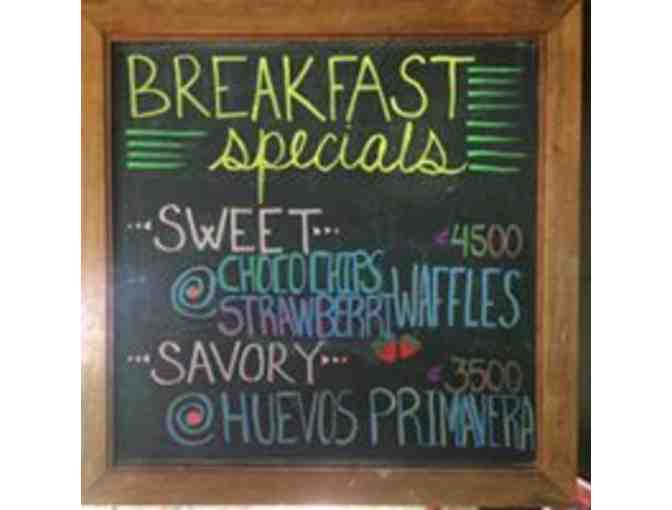 BREAKFAST
specials
SWEET
¢4500
@CHOCO CHIPS
STRAWBERRI WAFFLES
SAVORY
¢3500
@HUEVOS PRIMAVERA